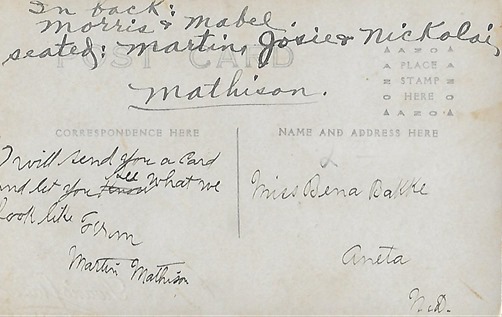 In back:
Morris & Mabel.
seated: Martin, Josie & Nickolai,
POST CARD
Mathison.
AZO
PLACE
STAMP
HERE
AZO
CORRESPONDENCE HERE
NAME AND ADDRESS HERE
I will send you a card
and let you see what we
look like
From
Martin Mathison
Miss Bena Bakke
Aneta
N.D.